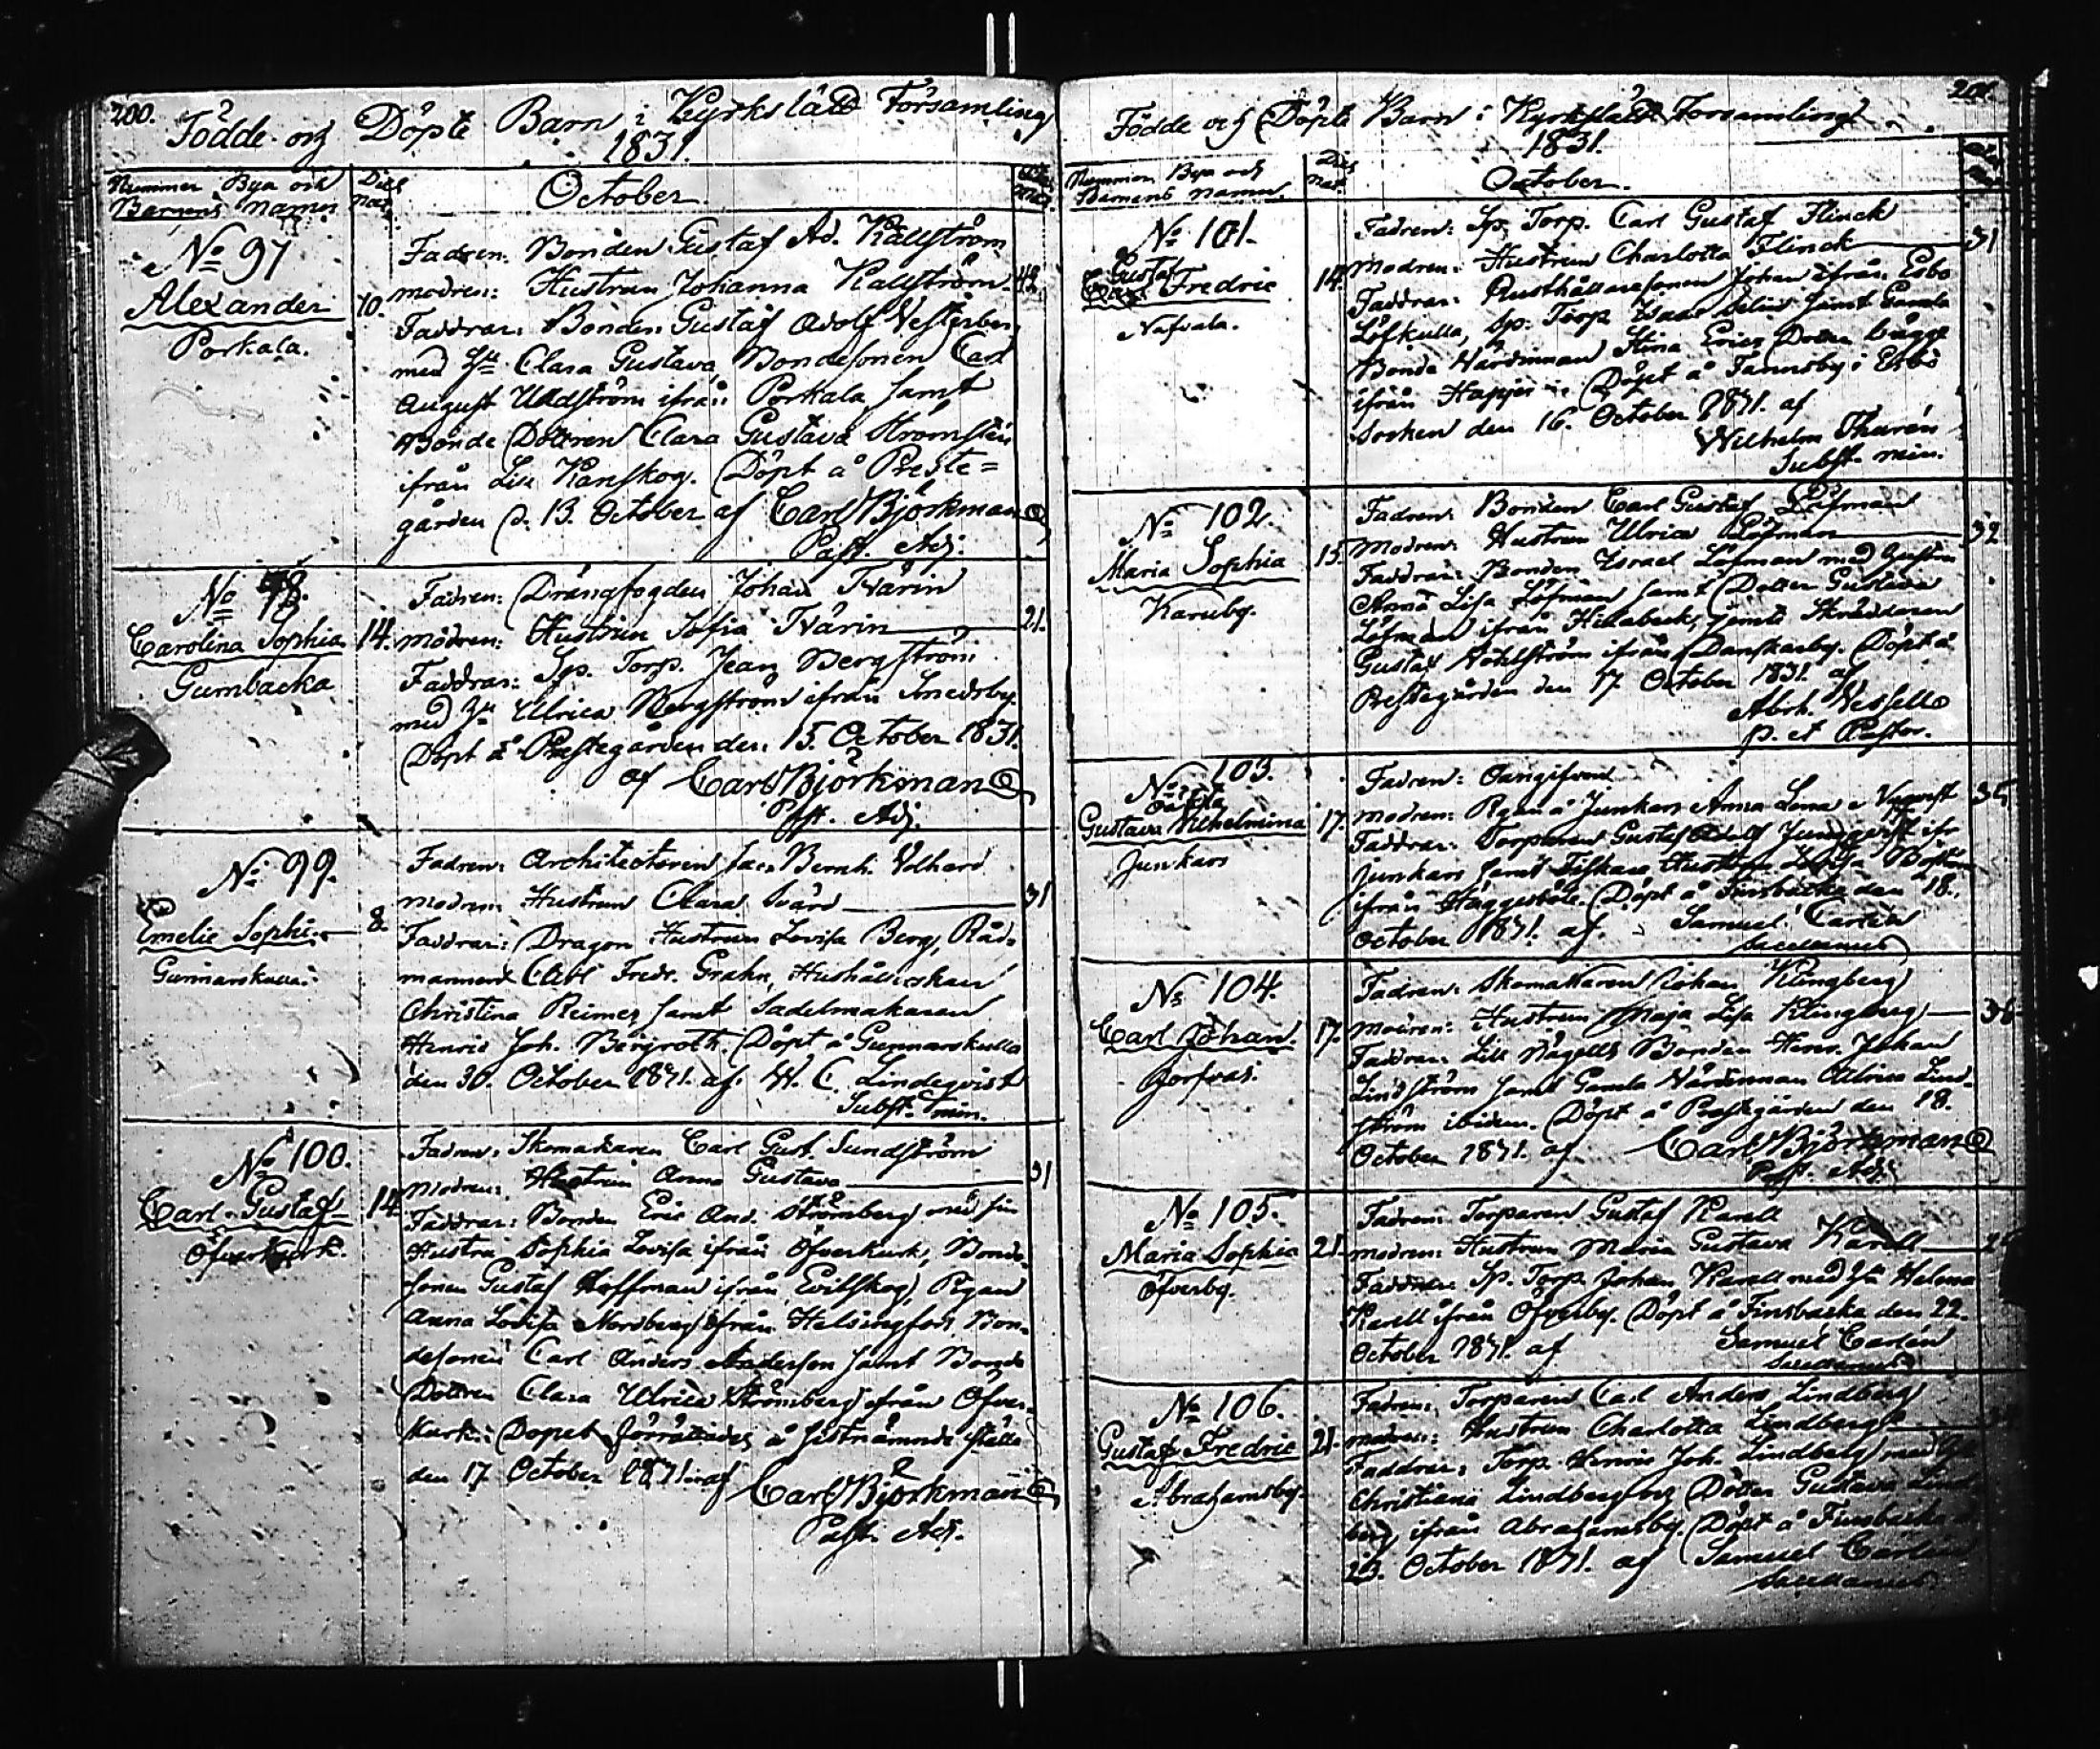 200.
Födde och Döpte Barn i Kyrkslätt Församling
1831.
Nummer Bya och
Barnens Namn
Dies
nat.
October.
No 97
Alexander
Porkala.
10.
Fadren: Bonden Gustaf Ad. Källström
modren: Hustrun Johanna Källström 42
Faddrar: Bonden Gustaf Adolf Westerberg
med Hu Clara Gustava, Bondesonen Carl
August Uddström ifrån Porkala samt
Bonde Dottren Clara Gustava Strömsten
ifrån Lill Kanskog. Döpt å Preste=
gården d. 13. October af Carl Björkman
Past. Adj.
No 98.
Carolina Sophia
Gumbacka
14.
Fadren: Drängfogden Johan Tvärin
modren: Hustrun Sofia Tvärin 21.
Faddrar: Sp. Torp. Jean Bergström
med Hu Ulrica Bergström ifrån Smedsby.
Döpt å Prestegården den 15. October 1831.
af Carl Björkman
Past. Adj.
No 99.
Emelie Sophia
Gunnarskulla.
8.
Fadren: Architectoren Jac. Bernh. Volhard
modren: Hustrun Clara Svärd 31
Faddrar: Dragon Hustrun Lovisa Berg, Råd-
mannen Carl Fredr. Grahn, Hushållerskan
Christina Reimer samt Sadelmakaren
Henric Joh. Bergroth. Döpt å Gunnarskulla
den 30. October 1831. af. W. C. Lindeqvist
Subst. min.
No 100.
Carl Gustaf
Öfverkurk.
14
Fadren: Skomakaren Carl Gust. Sundström
Modren: Hustrun Anna Gustava 31
Faddrar: Bonden Eric And. Strömberg med sin
Hustru Sophia Lovisa ifrån Öfverkurk, Bonde-
sonen Gustaf Hoffman ifrån Evitskog, Pigan
Anna Lovisa Nordberg ifrån Helsingfors, Bon-
desonen Carl Anders Anderson samt Bonde
Dottren Clara Ulrica Strömberg ifrån Öfver-
kurk. Dopet förrättades å sistnämnde ställe
den 17 October 1831. af Carl Björkman
Past. Adj.
201.
Födde och Döpte Barn i Kyrkslätt Församling
1831.
Nummer Bya och
Barnens Namn.
Dies
nat.
October.
No 101.
Gustaf
Fredric
Nafvala.
14.
Fadren: Sp. Torp. Carl Gustaf Flinck
Modren: Hustrun Charlotta Flinck 31
Faddrar: Rusthållaresonen Johan ifrån Esbo
Löfkulla, Sp. Torp. Isaac Selin samt Gamla
Bonde Värdinnan Stina Erics Dotter bägge
ifrån Döpt å Fannsby i Esbo
Socken den 16. October 1831. af
Wilhelm Thurén
Subst. min.
No 102.
Maria Sophia
Karuby.
15.
Fadren: Bonden Carl Gustaf Löfman
Modren: Hustrun Ulrica Löfman 32
Faddrar: Bonden Israel Löfman med Hustrun
Anna Lisa Löfman samt Dotter Gustava
Löfman ifrån jemte Skräddaren
Gustaf Wohlström ifrån Danskarby. Döpt å
Prestegården den 17. October 1831. af
Abrh. Wessell
p. et Pastor.
No 103.
Gustava Wilhelmina
Junkars
17.
Fadren: Oangifven
Modren: Pigan å Junkars Anna Lena 35
Faddrar: Torparen Gustaf Adolf Ljungqvist ifr.
Junkars samt Fiskare Hustrun Lovisa
ifrån Häggesböle. Döpt å Finsbacka den 18.
October 1831. af. Samuel Carlén
Sacellanus
No 104.
Carl Johan.
Jorfvas.
17.
Fadren: Skomakaren Johan Klingberg
Modren: Hustrun Maja Lisa Klingberg 36
Faddrar: Lill Nägells Bonden Henr. Johan
Lindström samt Gamla Värdinnan Ulrica Lind-
ström ibidem. Döpt å Prestegården den 18.
October 1831. af Carl Björkman
Past. Adj.
No 105.
Maria Sophia
Öfverby.
21.
Fadren: Torparen Gustaf Karell
modren: Hustrun Maria Gustava Karell
Faddrar: Sp. Torp. Johan Karell med Hu Helena
Karell ifrån Öfverby. Döpt å Finsbacka den 22.
October 1831. af Samuel Carlén
Sacellanus
No 106.
Gustaf Fredric
Abrahamsby.
21.
Fadren: Torparen Carl Anders Lindberg
modren: Hustrun Charlotta Lindberg
Faddrar: Torp. Henric Joh. Lindberg med Hu
Christiana Lindberg och Dotter Gustava Lind-
berg ifrån Abrahamsby. Döpt å Finsbacka d.
23. October 1831. af Samuel Carlén
Sacellanus